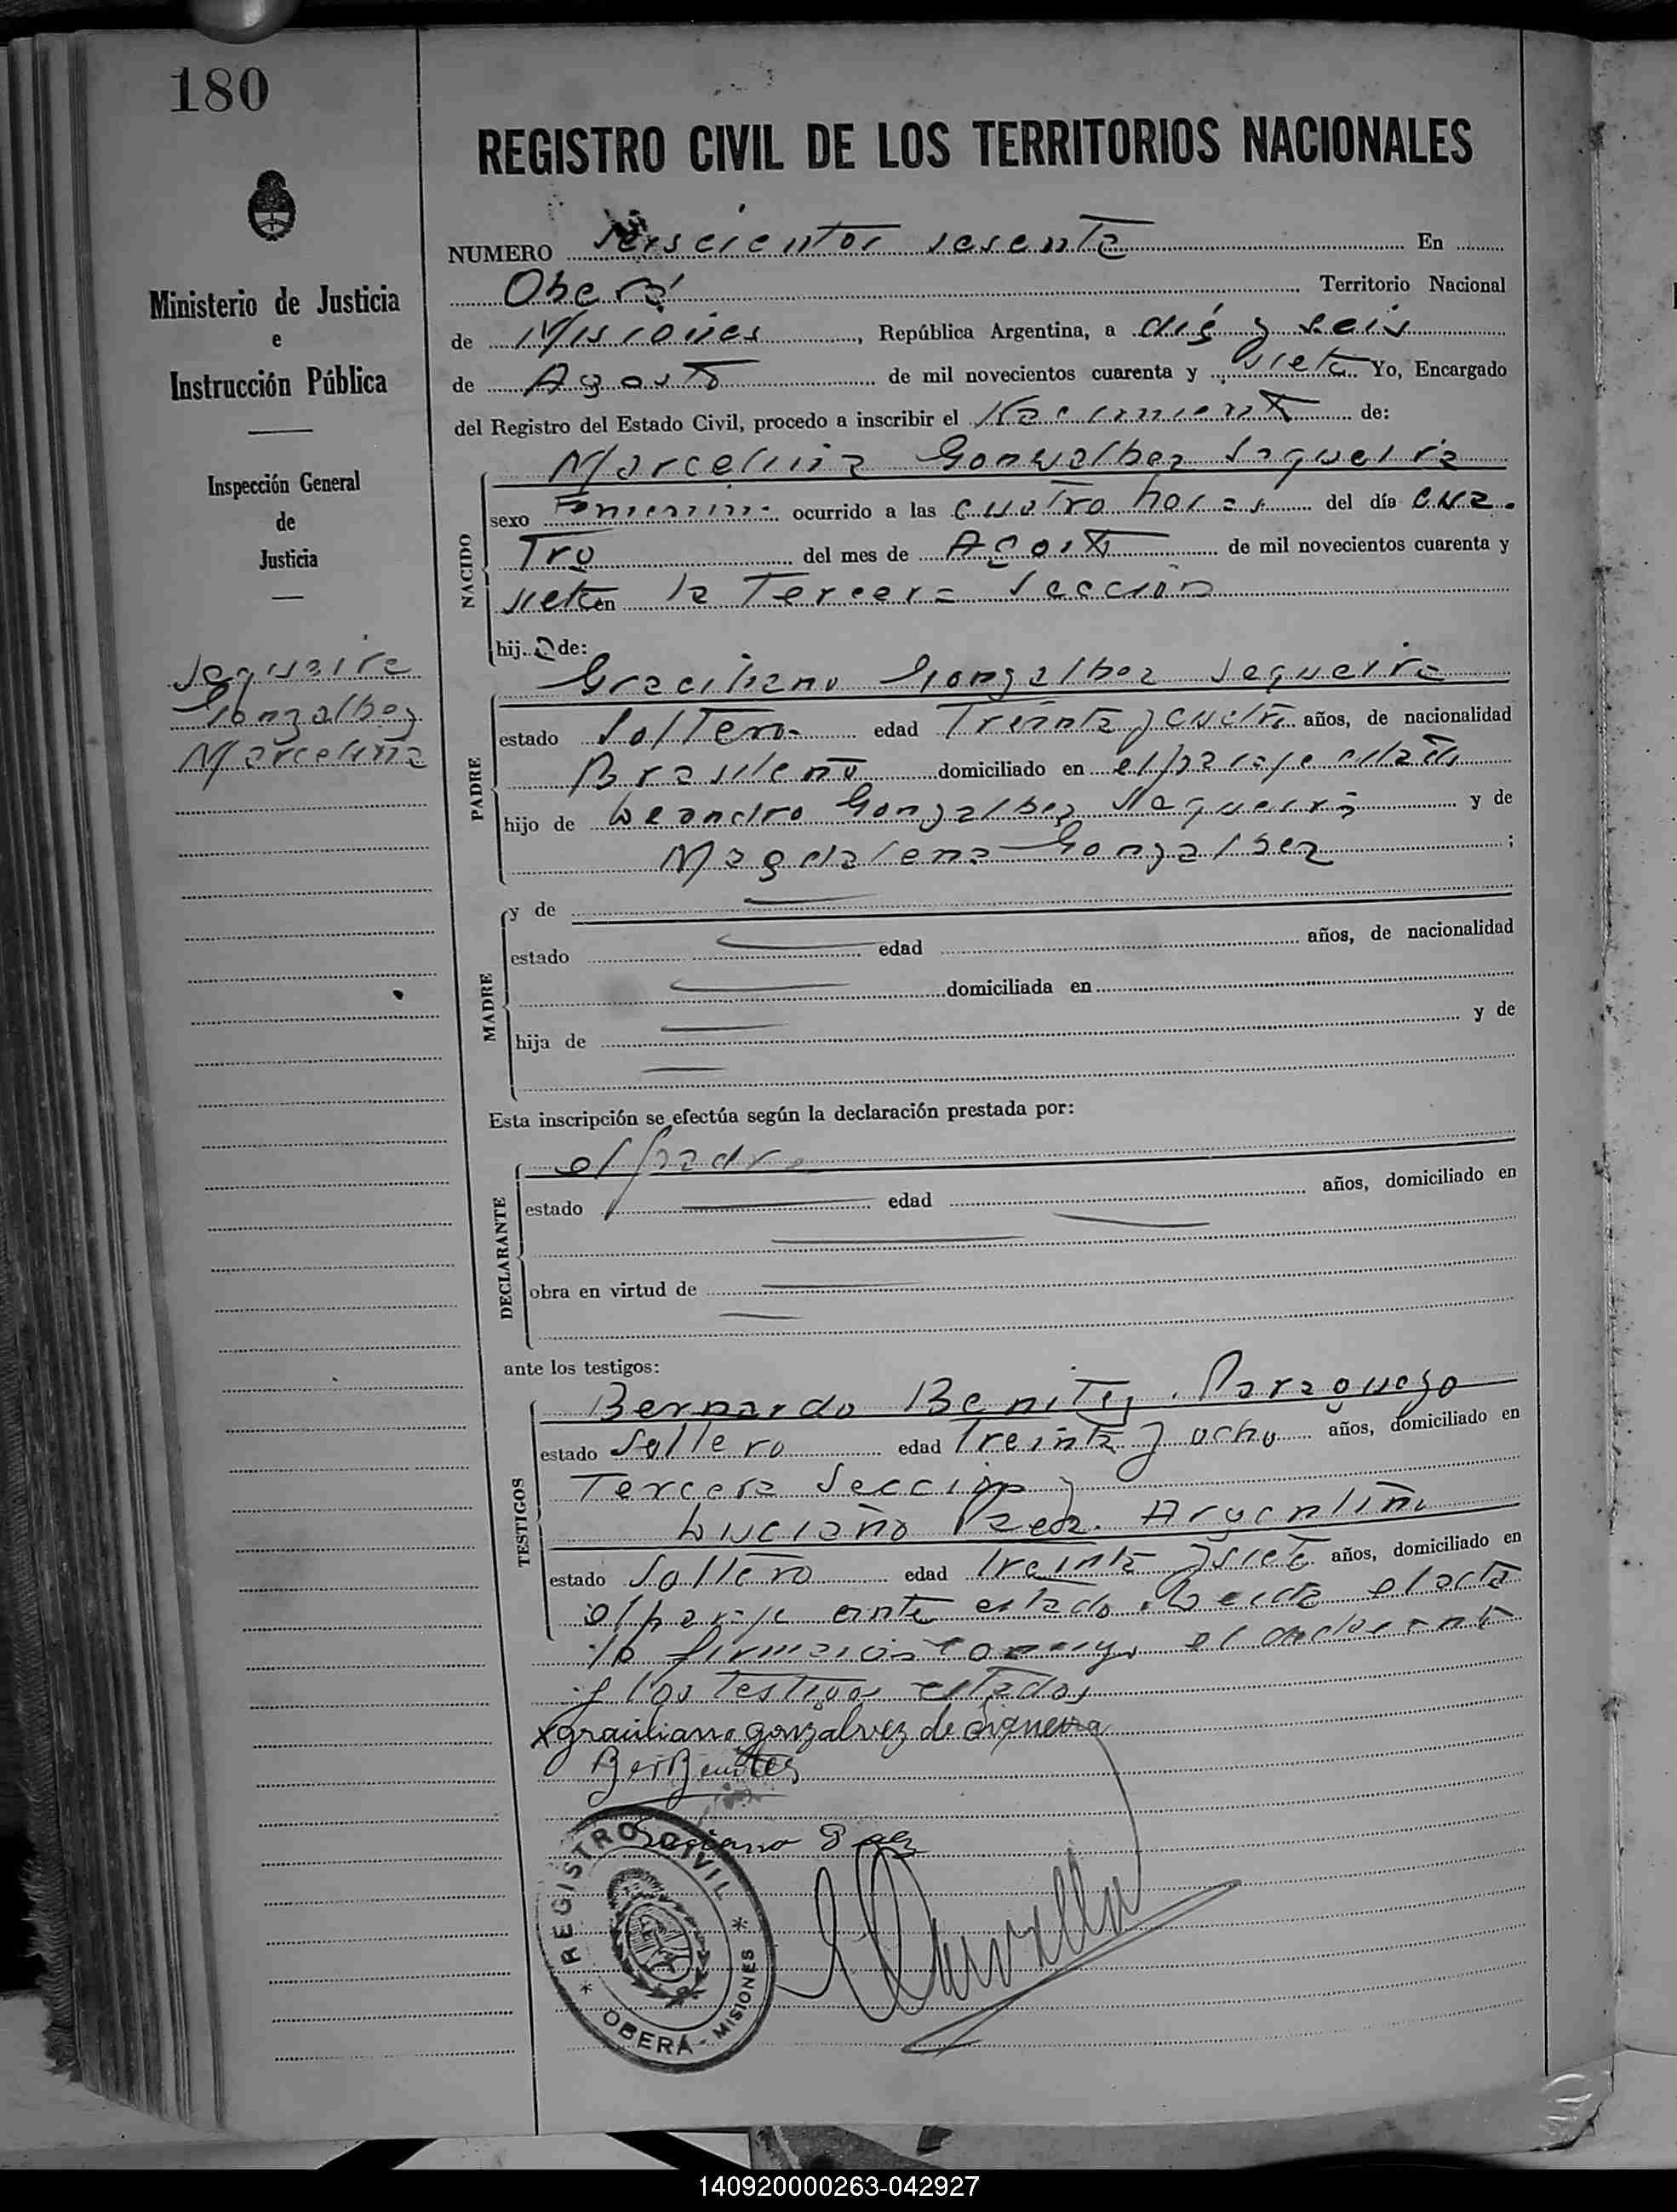 180
REGISTRO CIVIL DE LOS TERRITORIOS NACIONALES
Ministerio de Justicia
e
Instrucción Pública
Inspección General
de
Justicia
Sequeira
Gonzalbez
Marcelina
NUMERO Seiscientos sesenta En
Oberá Territorio Nacional
de Misiones, República Argentina, a diés y seis
de Agosto de mil novecientos cuarenta y siete Yo, Encargado
del Registro del Estado Civil, procedo a inscribir el Nacimiento de:
NACIDO
Marcelina Gonzalbez Sequeira
sexo Femenino ocurrido a las cuatro horas del día cua-
tro del mes de Agosto de mil novecientos cuarenta y
siete en la Tercera Sección
hij a de:
PADRE
Graciliano Gonzalbez Sequeira
estado Soltero edad Treinta y cuatro años, de nacionalidad
Brasileño domiciliado en el paraje citado
hijo de Leandro Gonzalbez Sequeira y de
Magdalena Gonzalbez ;
MADRE
y de
estado edad años, de nacionalidad
domiciliada en
hija de y de
Esta inscripción se efectúa según la declaración prestada por:
DECLARANTE
el padre
estado edad años, domiciliado en
obra en virtud de
ante los testigos:
TESTIGOS
Bernardo Benitez, Paraguayo
estado Soltero edad treinta y ocho años, domiciliado en
Tercera Sección y
Luciano Paez. Argentino
estado Soltero edad treinta y siete años, domiciliado en
el paraje ante citado. Leida el acta
la firmaron conmigo el declarante
y los testigos citados
x graciliano gonzalvez de siqueira
Ber Benitez
Luciano Paez
REGISTRO CIVIL
OBERÁ - MISIONES
140920000263-042927